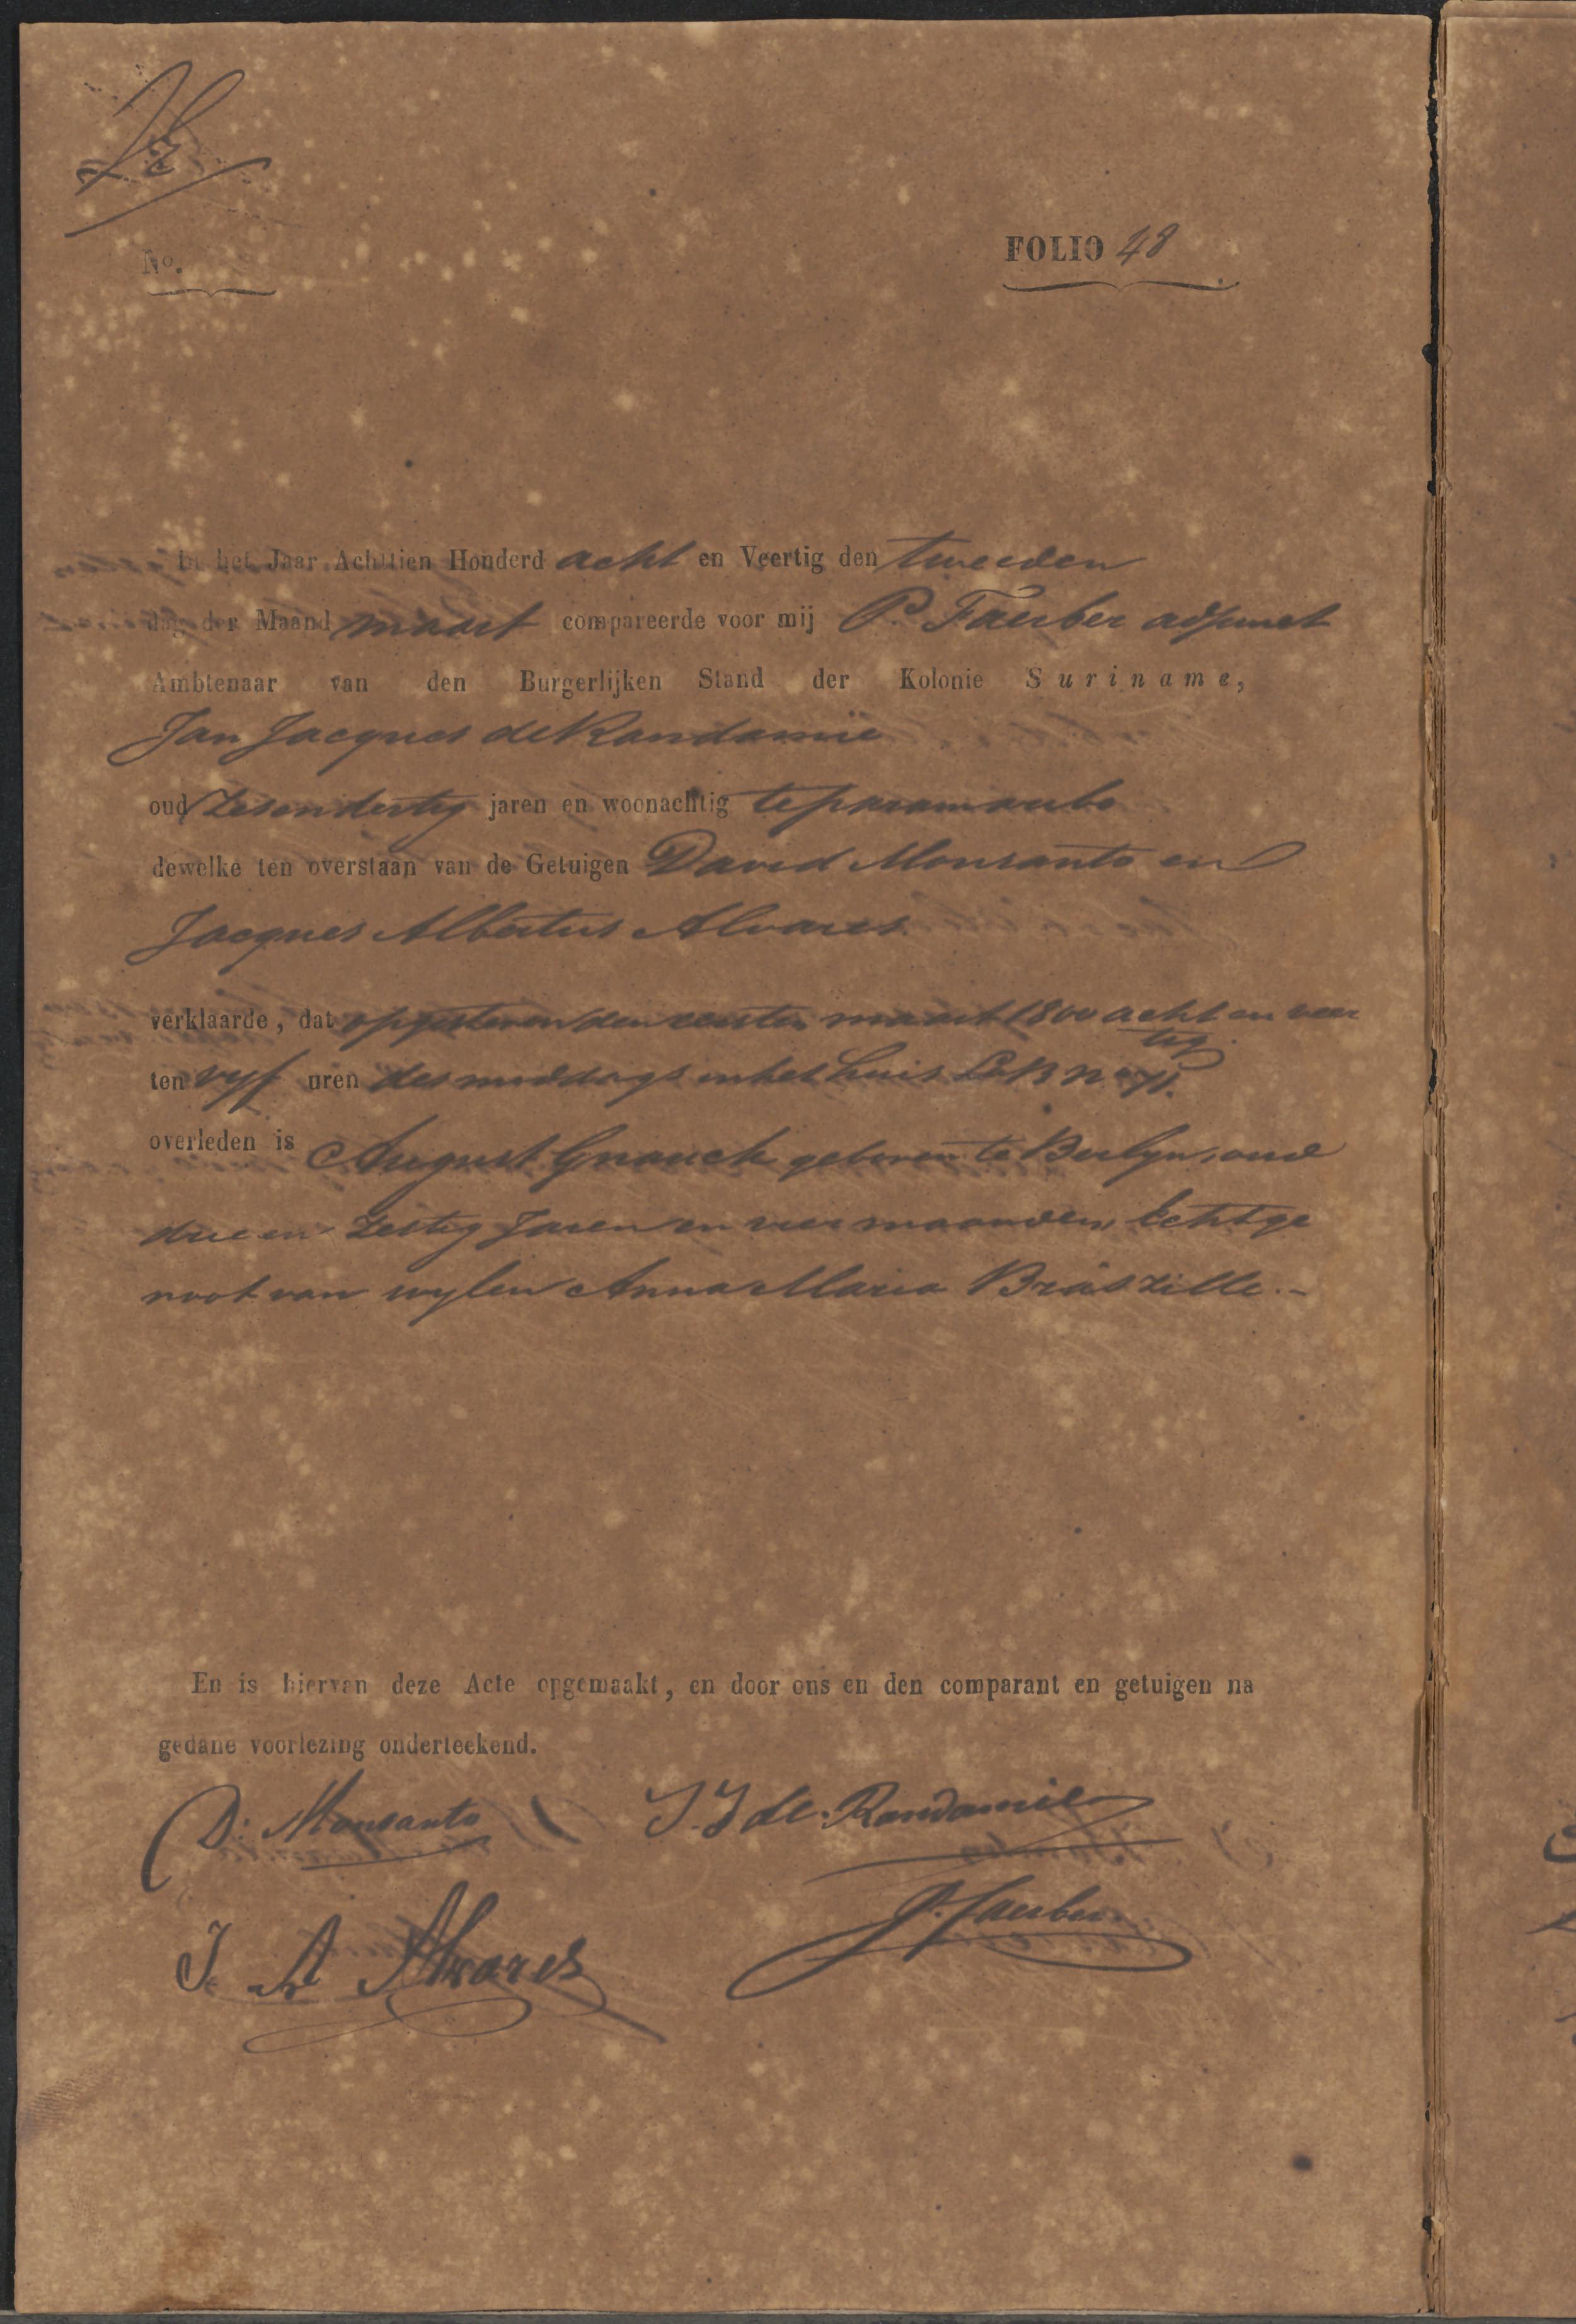 No.
FOLIO 48
In het Jaar Achttien Honderd acht en Veertig den tweeden
dag der Maand maart compareerde voor mij P. Faerber adjunct
Ambtenaar van den Burgerlijken Stand der Kolonie Suriname,
Jan Jacques de Randamie
oud zesendertig jaren en woonachtig te paramaribo
dewelke ten overstaan van de Getuigen David Monsanto en
Jacques Albertus Alvares
verklaarde, dat op gisteren den eersten maart 1800 acht en veer
tig
ten vyf uren des middags in het huis La B No 71.
overleden is August Gnauck geboren te Berlyn, oud
drie en zestig Jaren en vier maanden, Echtge
noot van wylen Anna Maria Braszille.-
En is hiervan deze Acte opgemaakt, en door ons en den comparant en getuigen na
gedane voorlezing onderteekend.
D: Monsanto J. J de Randamie
J. A Alvares P. Faerber